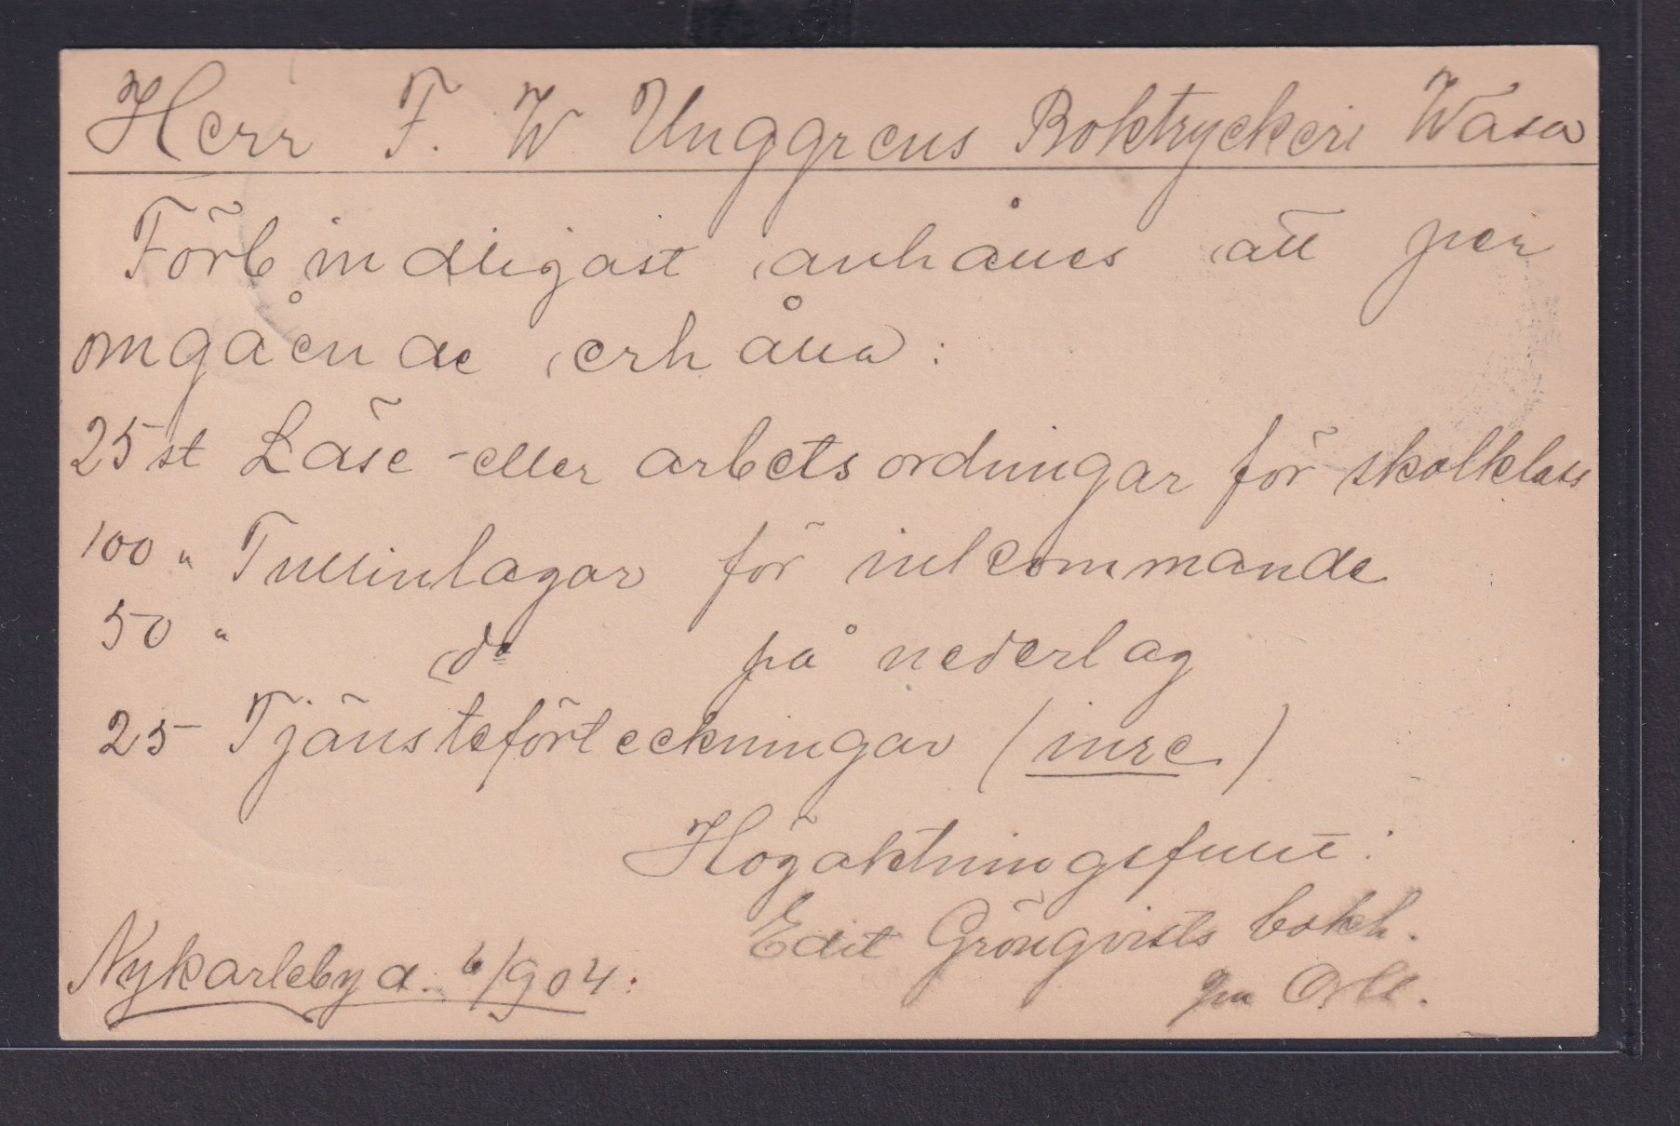 Herr F. W Unggrens Boktryckeri Wasa
Förbindligast anhålles att per
omgående erhålla:
25 st Läse- eller arbetsordningar för skolklass
100 " Tullinlagar för inkommande
50 " do på nederlag
25 Tjänsteförteckningar (inre)
Högaktningsfullt:
Edit Grönqvists bokh.
Nykarleby d. 6/904.